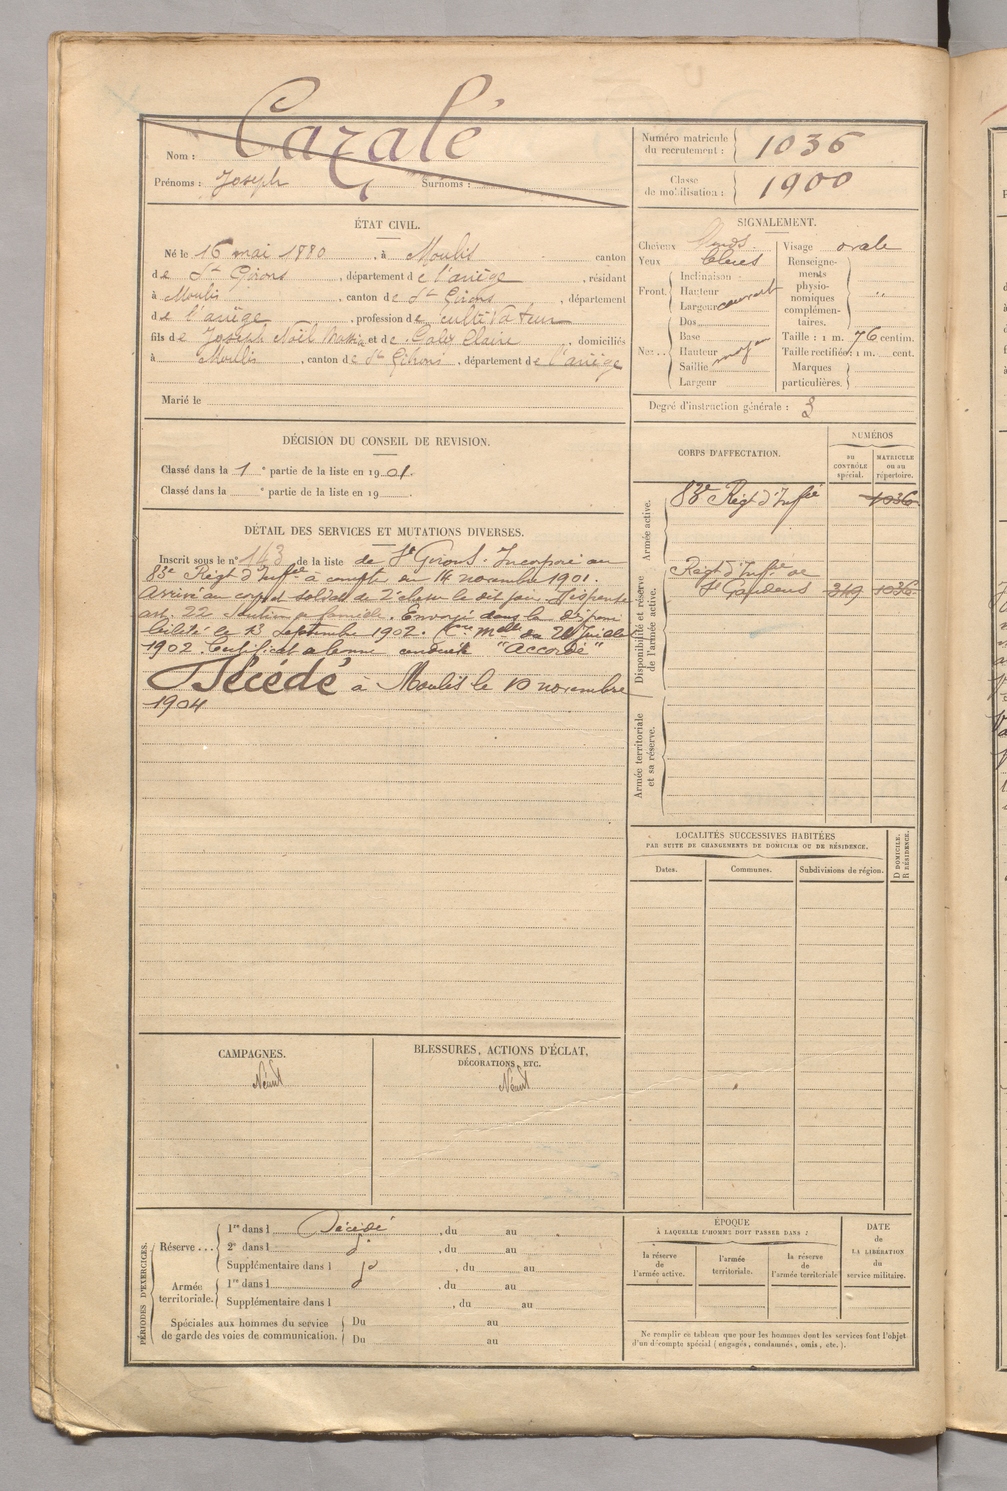 Nom : Cazalé
Prénoms : Joseph Surnoms :
Numéro matricule du recrutement : 1036
Classe de mobilisation : 1900
ÉTAT CIVIL.
Né le 16 mai 1880, à Moulis canton
de St Girons, département de l'ariège, résidant
à Moulis, canton de St Girons, département
de l'ariège, profession de cultivateur
fils de Joseph Noël et de Galey Claire, domiciliés
à Moulis, canton de St Girons, département de l'ariège
Marié le
SIGNALEMENT.
Cheveux blonds Visage ovale
Yeux bleus
Front. Inclinaison
Hauteur
Largeur couvert
Nez. Dos
Base
Hauteur moyen
Saillie
Largeur
Renseignements physionomiques complémentaires. "
Taille : 1 m. 76 centim.
Taille rectifiée : 1 m. cent.
Marques particulières.
Degré d'instruction générale : 3
DÉCISION DU CONSEIL DE REVISION.
Classé dans la 1e partie de la liste en 1901.
Classé dans la e partie de la liste en 19 .
DÉTAIL DES SERVICES ET MUTATIONS DIVERSES.
Inscrit sous le n° 143 de la liste de St Girons. Incorporé au
83e Régt d'Inffie à compter du 14 novembre 1901.
Arrivé au corps et soldat de 2e classe le dit jour. Dispensé
art. 22 soutien de famille. Envoyé dans la disponi
bilité le 13 septembre 1902. du 28 juillet
1902. Certificat de bonne conduite "Accordé"
Décédé à Moulis le 10 novembre
1904
CORPS D'AFFECTATION.
NUMÉROS
au CONTRÔLE spécial.
MATRICULE ou au répertoire.
Armée active.
83e Régt d'Inffie 1036
Disponibilité et réserve de l'armée active.
Régt d'Inffie de
St Gaudens 349 1036
Armée territoriale et sa réserve.
LOCALITÉS SUCCESSIVES HABITÉES
PAR SUITE DE CHANGEMENTS DE DOMICILE OU DE RÉSIDENCE.
Dates. Communes. Subdivisions de région. D DOMICILE. R RÉSIDENCE.
CAMPAGNES.
Néant
BLESSURES, ACTIONS D'ÉCLAT,
DÉCORATIONS, ETC.
Néant
PÉRIODES D'EXERCICES.
Réserve ... 1re dans l Décédé, du au
2e dans l do, du au
Supplémentaire dans l do, du au
Armée territoriale. 1re dans l, du au
Supplémentaire dans l, du au
Spéciales aux hommes du service de garde des voies de communication. Du au
Du au
ÉPOQUE
À LAQUELLE L'HOMME DOIT PASSER DANS :
la réserve de l'armée active.
l'armée territoriale.
la réserve de l'armée territoriale
DATE de LA LIBÉRATION du service militaire.
Ne remplir ce tableau que pour les hommes dont les services font l'objet
d'un décompte spécial (engagés, condamnés, omis, etc.).